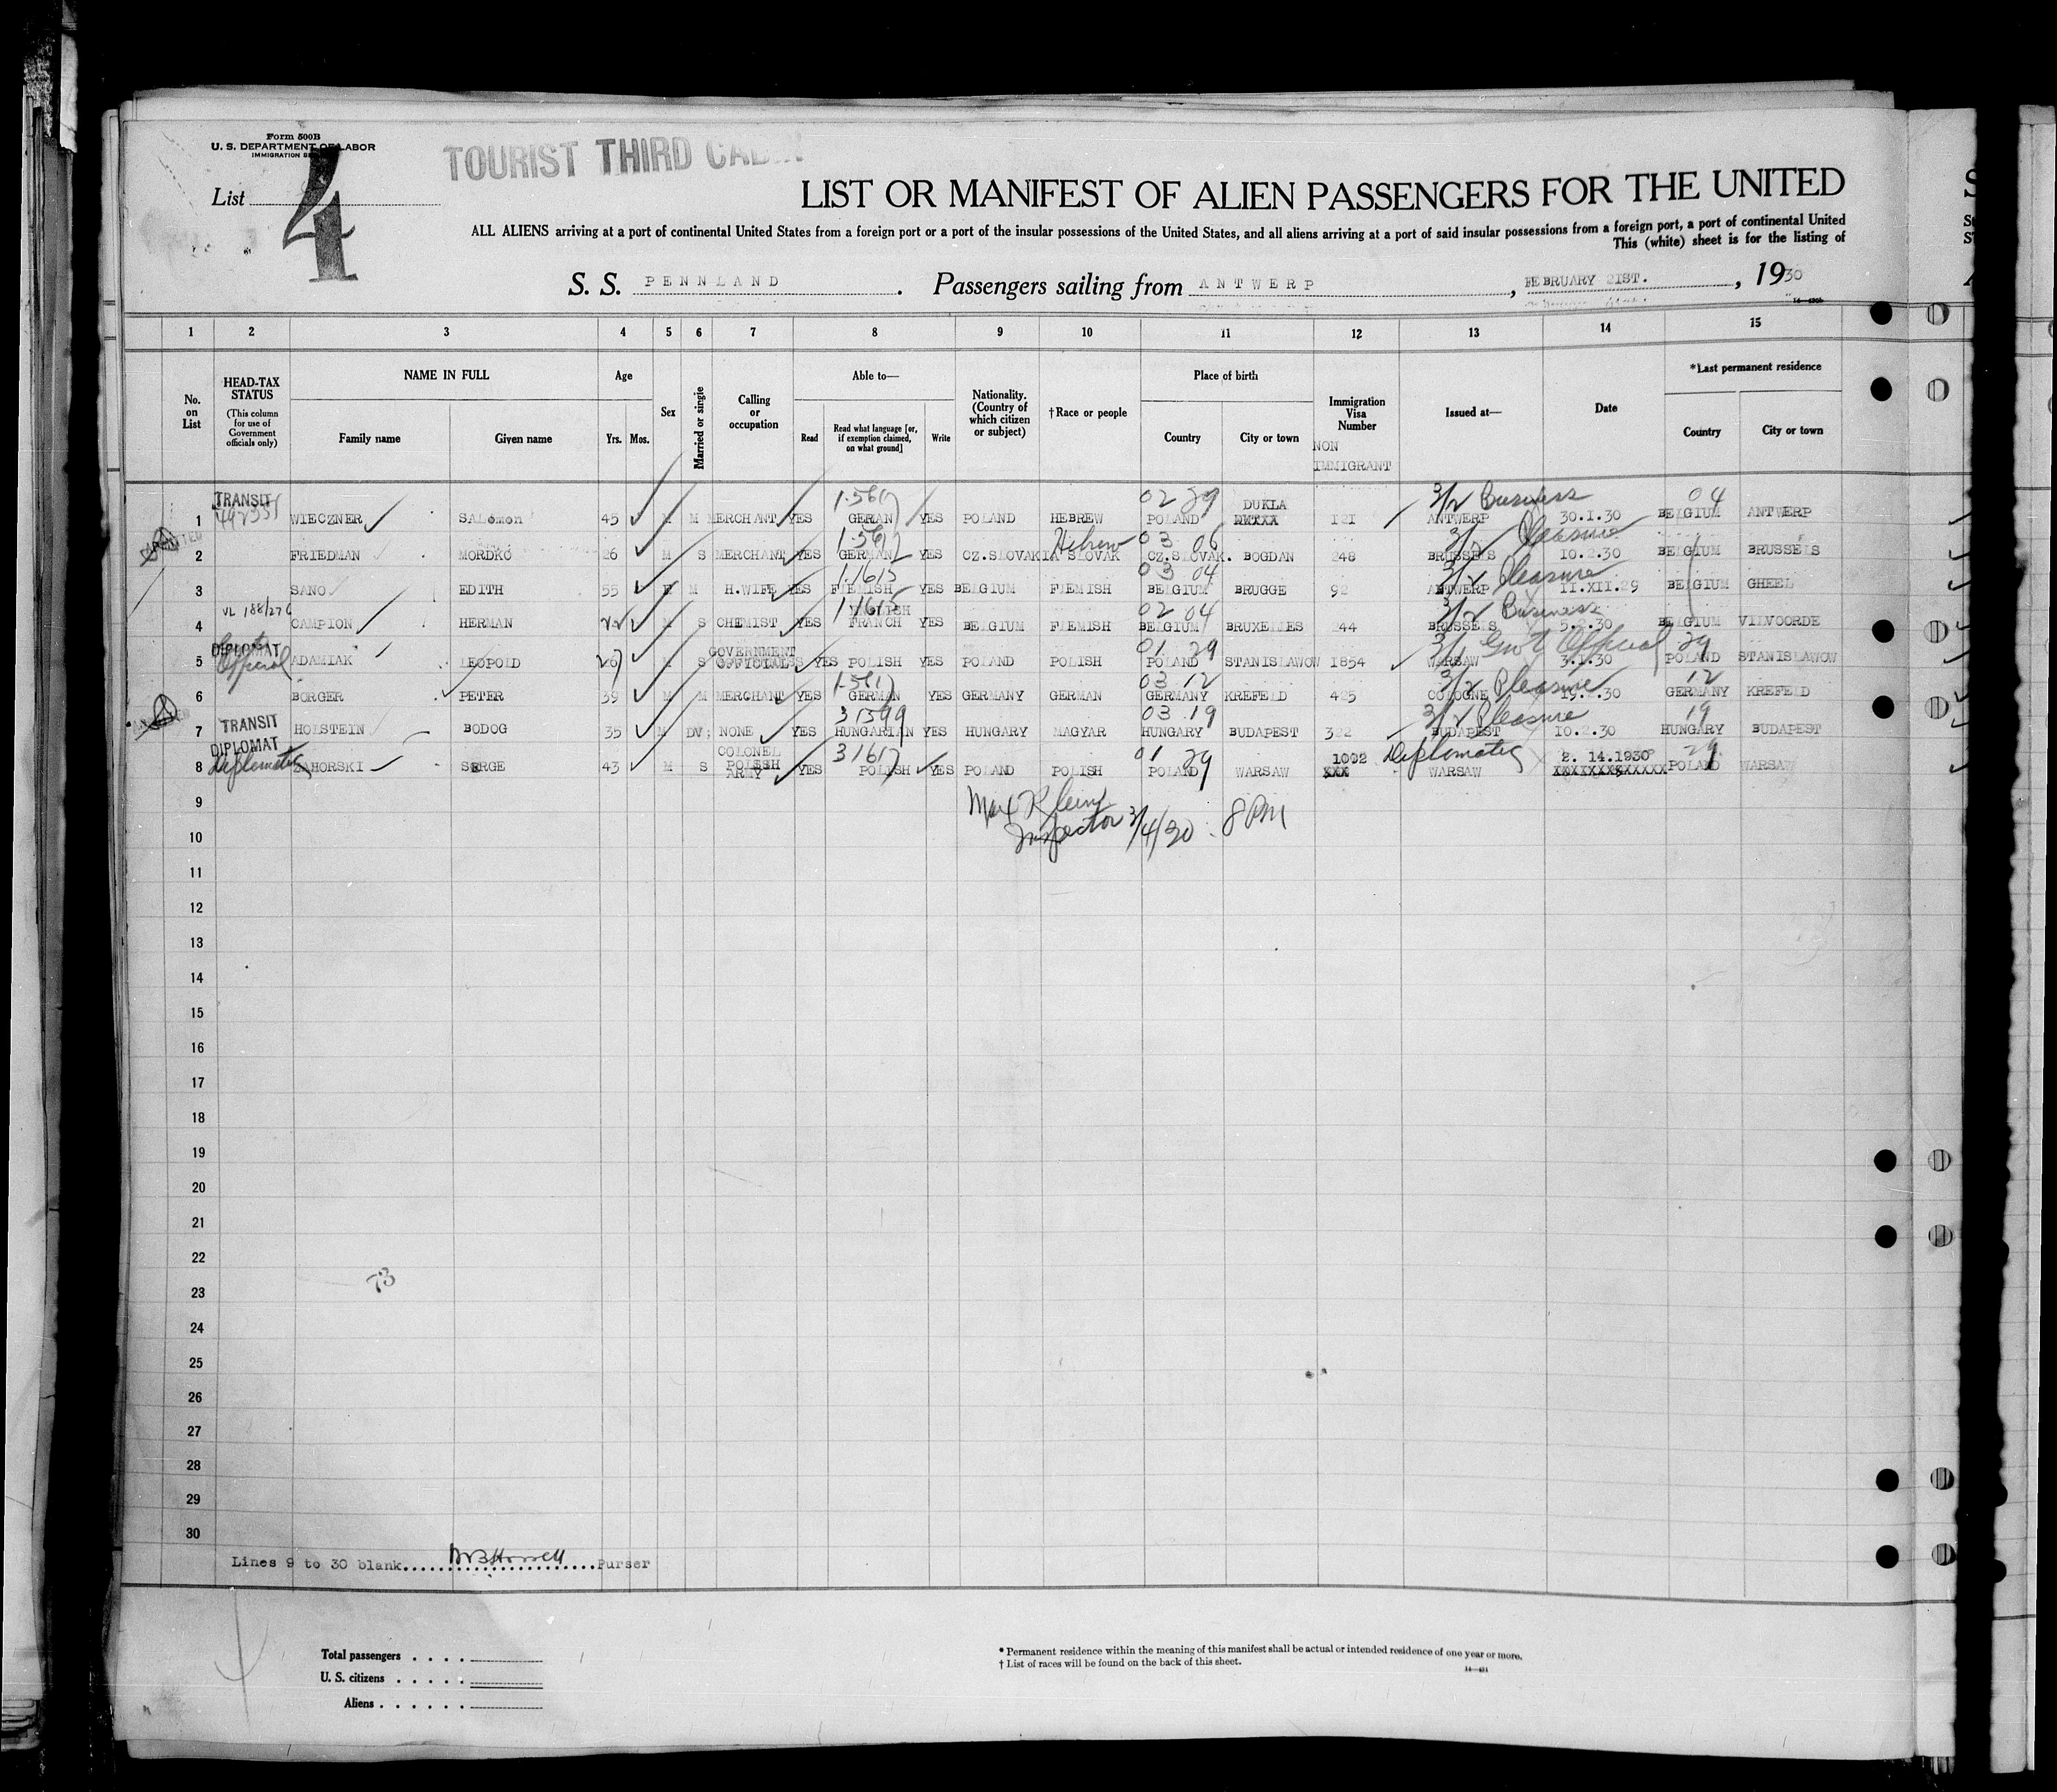 Form 500B
U. S. DEPARTMENT OF LABOR
IMMIGRATION
TOURIST THIRD CABIN
List 4
LIST OR MANIFEST OF ALIEN PASSENGERS FOR THE UNITED
ALL ALIENS arriving at a port of continental United States from a foreign port or a port of the insular possessions of the United States, and all aliens arriving at a port of said insular possessions from a foreign port, a port of continental United
This (white) sheet is for the listing of
S. S. PENNLAND. Passengers sailing from ANTWERP, FEBRUARY 21ST., 1930
1 2 3 4 5 6 7 8 9 10 11 12 13 14 15
HEAD-TAX STATUS (This column for use of Government officials only)
No. on List
NAME IN FULL
Family name Given name
Age
Yrs. Mos.
Sex
Married or single
Calling or occupation
Able to—
Read
Read what language [or, if exemption claimed, on what ground]
Write
Nationality. (Country of which citizen or subject)
†Race or people
Place of birth
Country City or town
Immigration Visa Number
NON IMMIGRANT
Issued at—
Date
*Last permanent residence
Country City or town
TRANSIT 02 29 DUKLA 3/2 Business 04
1 WIECZNER SALomon 45 M M MERCHANT YES GERAN YES POLAND HEBREW POLAND 121 ANTWERP 30.1.30 BELGIUM ANTWERP
Hebrew 03 06 3/2 Pleasure
2 FRIEDMAN MORDKO 26 M S MERCHANT YES GERMAN YES CZ.SLOVAKIA SLOVAK CZ.SLOVAK. BOGDAN 248 BRUSSELS 10.2.30 BELGIUM BRUSSELS
1.1615 03 04 3/2 Pleasure
3 SANO EDITH 55 F M H.WIFE YES FLEMISH YES BELGIUM FLEMISH BELGIUM BRUGGE 92 ANTWERP 11.XII.29 BELGIUM GHEEL
VL 188/276 1.1615 ENGLISH 02 04 3/2 Business
4 CAMPION HERMAN 22 M S CHEMIST YES FRANCH YES BELGIUM FLEMISH BELGIUM BRUXELLES 244 BRUSSELS 5.2.30 BELGIUM VILVOORDE
DIPLOMAT Official GOVERNMENT 01 29 3/1 Gov't Official 29
5 ADAMIAK LEOPOLD 26 M S OFFICIALS YES POLISH YES POLAND POLISH POLAND STANISLAWOW 1854 WARSAW 3.1.30 POLAND STANISLAWOW
03 12 3/2 Pleasure 12
6 BORGER PETER 39 M M MERCHANT YES GERMAN YES GERMANY GERMAN GERMANY KREFELD 425 COLOGNE .30 GERMANY KREFELD
TRANSIT 31599 03 19 3/2 Pleasure 19
7 HOLSTEIN BODOG 35 M DV; NONE YES HUNGARIAN YES HUNGARY MAGYAR HUNGARY BUDAPEST 322 BUDAPEST 10.2.30 HUNGARY BUDAPEST
DIPLOMAT Diplomatic COLONEL 31617 01 29 1002 Diplomatic 2. 14.1930 29
8 ZAHORSKI SERGE 43 M S POLISH ARMY YES POLISH YES POLAND POLISH POLAND WARSAW XXX WARSAW XXXXXXXXXXXXX POLAND WARSAW
9 Max Klein
10 Inspector 3/4/30 8 PM
11
12
13
14
15
16
17
18
19
20
21
22
73
23
24
25
26
27
28
29
30
Lines 9 to 30 blank Purser
Total passengers . . . .
U. S. citizens . . . . .
Aliens . . . . . .
* Permanent residence within the meaning of this manifest shall be actual or intended residence of one year or more.
† List of races will be found on the back of this sheet.